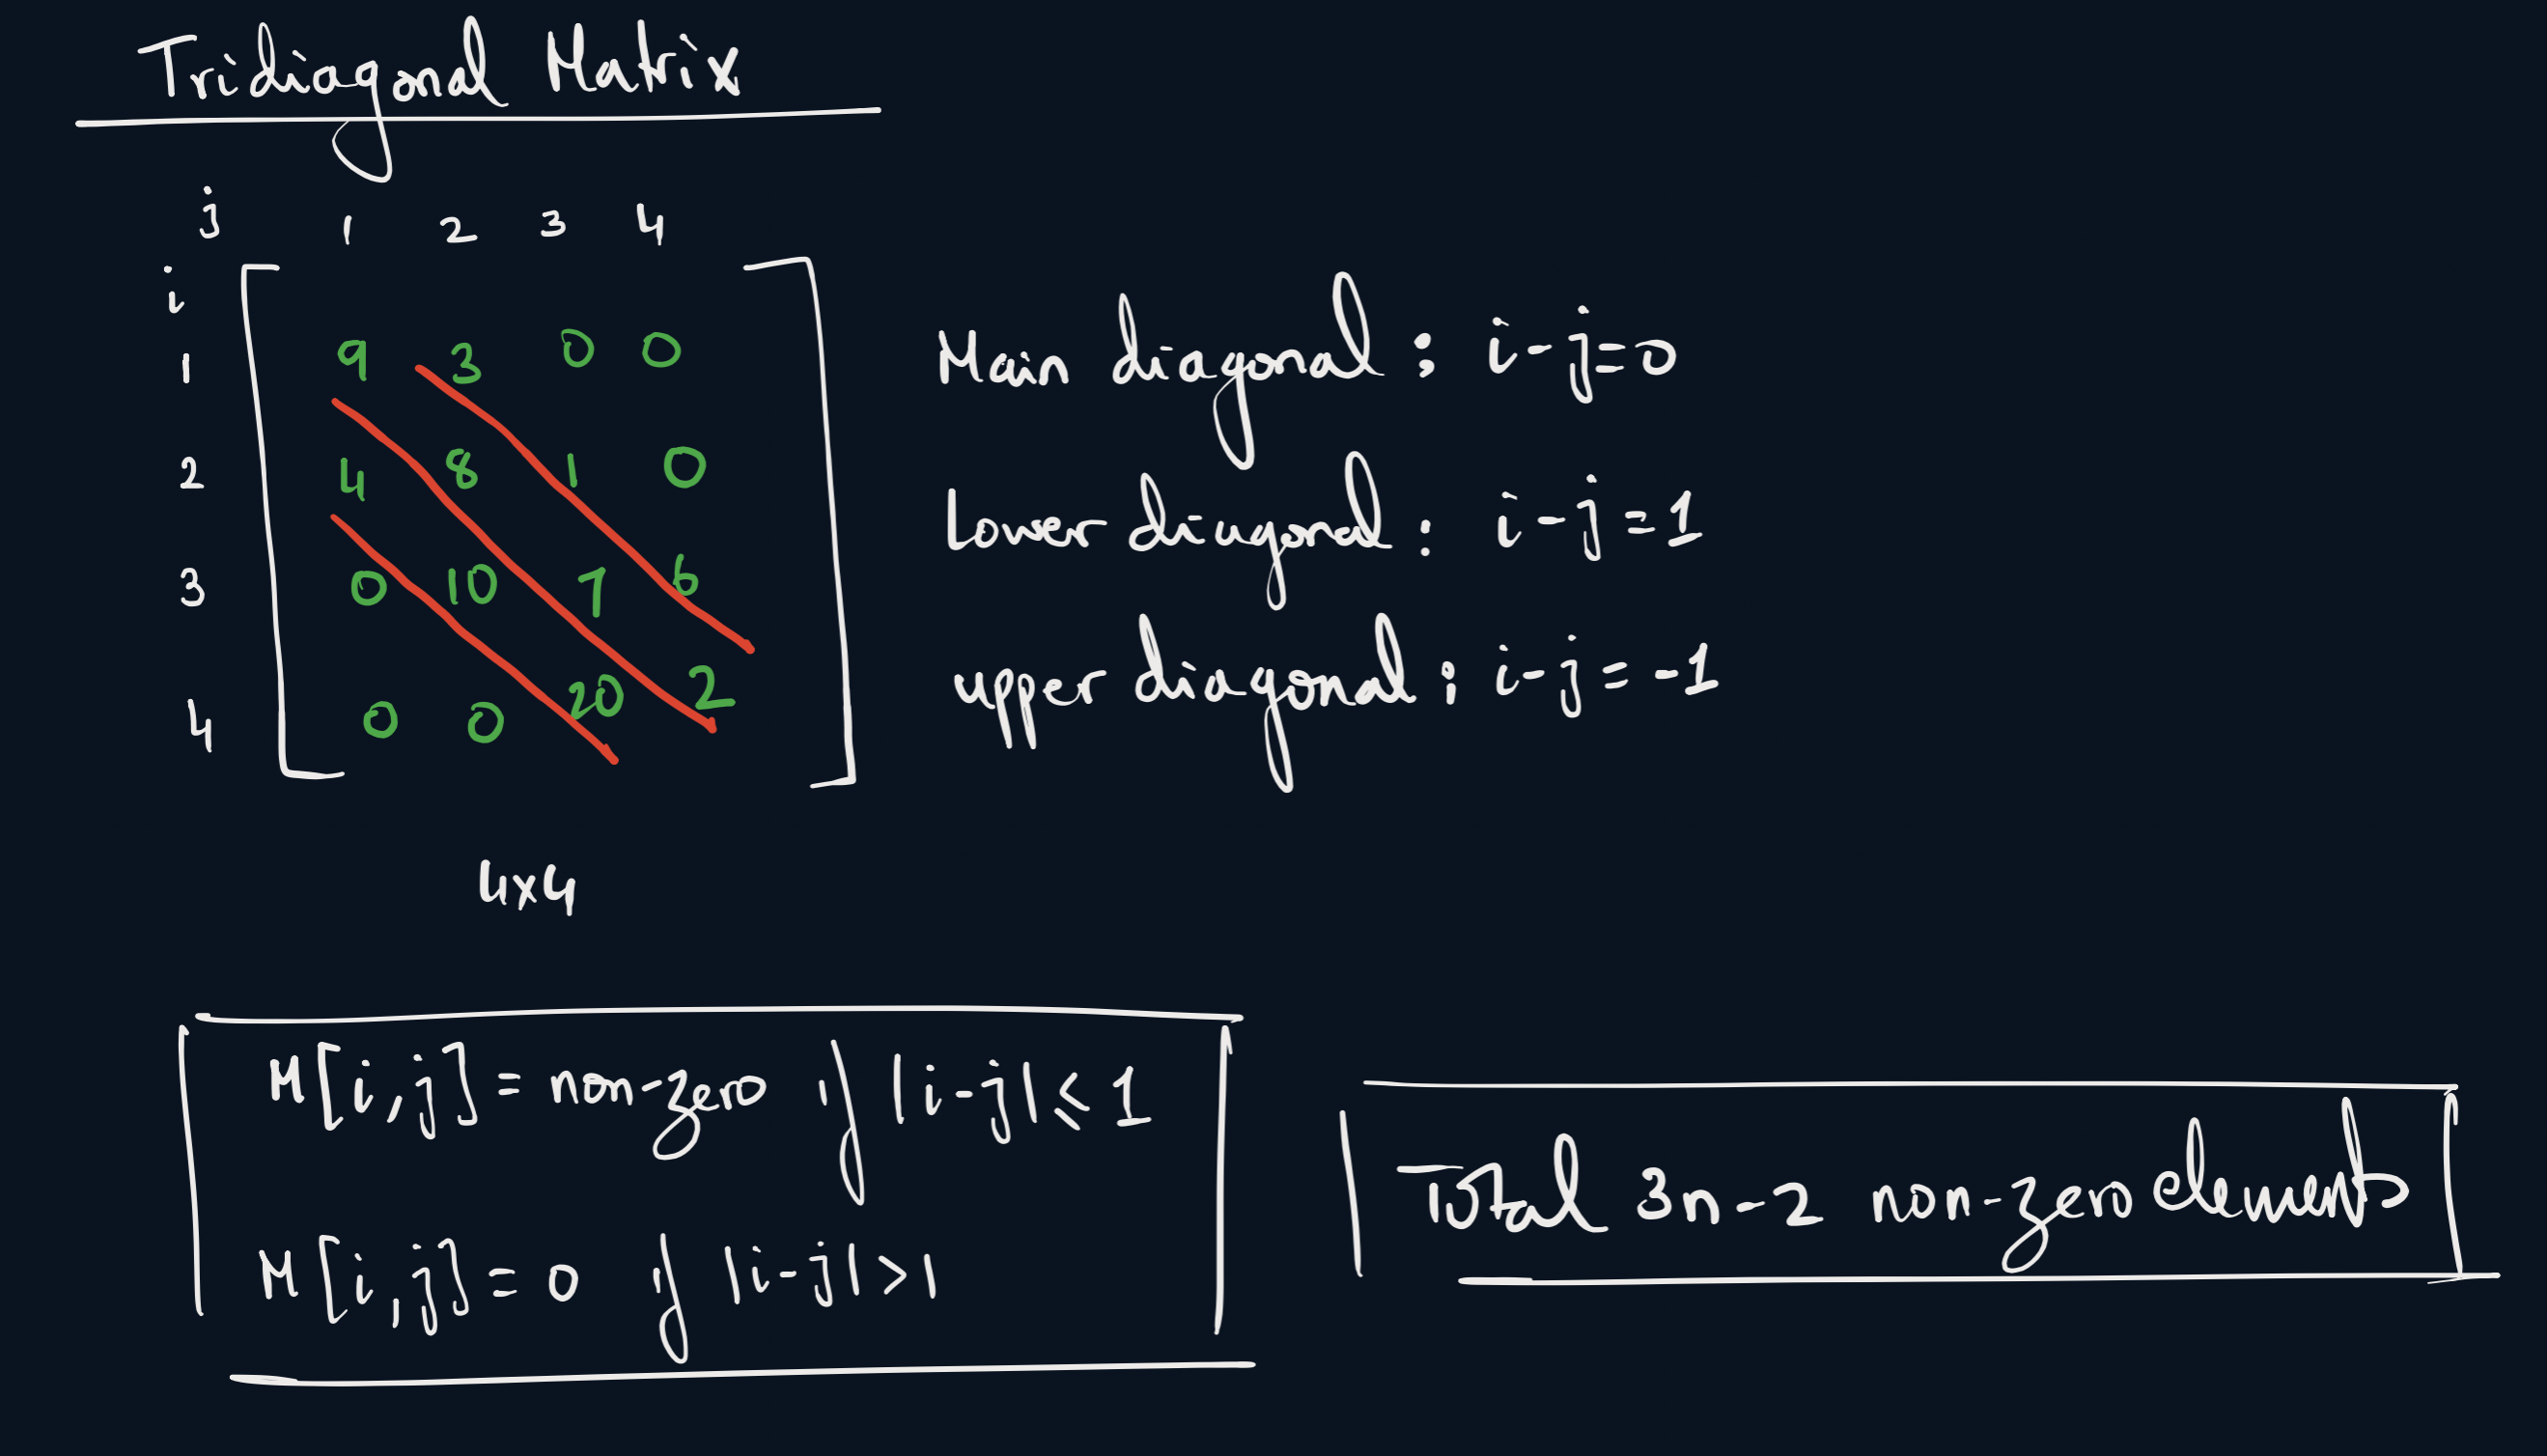 Tridiagonal Matrix
j 1 2 3 4
i
1 9 3 0 0
2 4 8 1 0
3 0 10 7 6
4 0 0 20 2
4x4
Main diagonal : i-j=0
Lower diagonal : i-j=1
upper diagonal : i-j=-1
M[i,j] = non-zero if |i-j| ≤ 1
M[i,j] = 0 if |i-j| > 1
Total 3n-2 non-zero elements